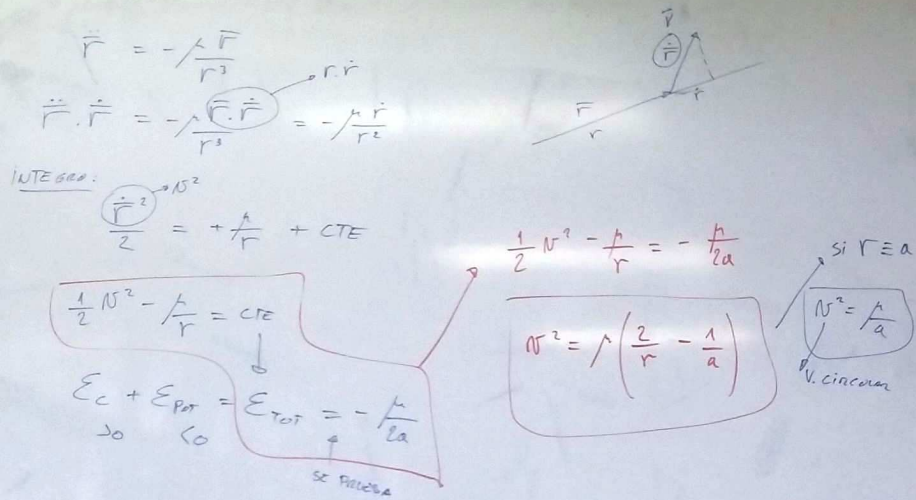 r̄̈ = -μ r̄/r³
r̄̈ . r̄̇ = -μ/r³ r̄.r̄̇ = -μ ṙ/r²
r.ṙ
INTEGRO:
r̄̇²/2 = +μ/r + CTE
v²
1/2 v² - μ/r = CTE
Ec + EPOT = ETOT = -μ/2a
>0 <0
SE PRUEBA
v̄
r̄̇
ṙ
r̄
r
1/2 v² - μ/r = -μ/2a
v² = μ(2/r - 1/a)
si r ≡ a
v² = μ/a
V. circular